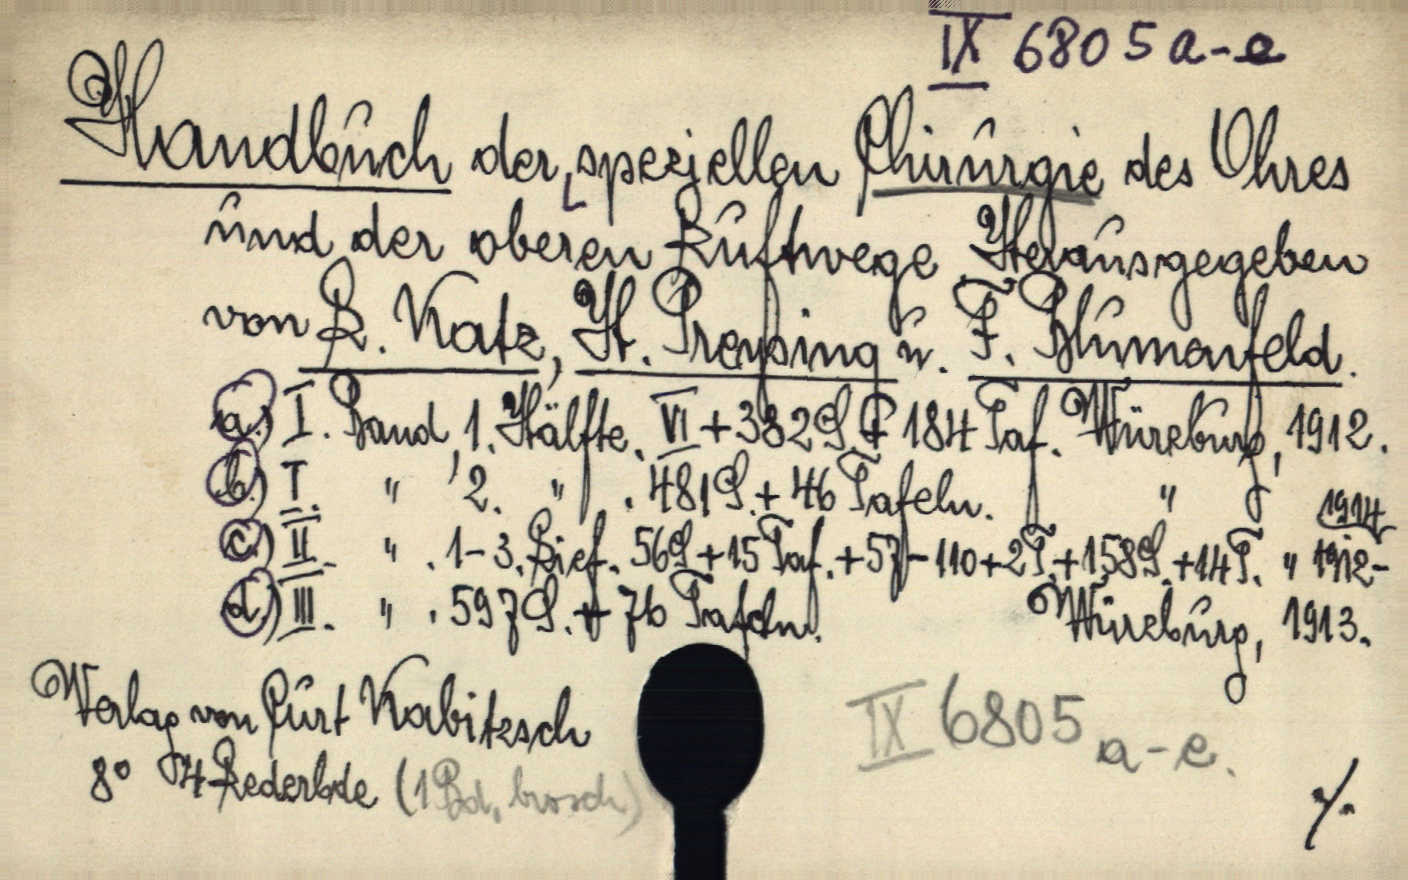 IX 6805 a-e
Handbuch der speziellen Chirurgie des Ohres
und der oberen Luftwege. Herausgegeben
von L. Katz, H. Preysing u. F. Blumenfeld.
a.) I. Band, 1. Hälfte. VI + 382 S. + 184 Taf. Würzburg, 1912.
b.) I. " 2. " . 481 S. + 46 Tafeln. " 1914
c.) II. " . 1-3. Lief. 56 S. + 15 Taf. + 57-110 + 2 T. + 158 S. + 14 T. " 1912-
d.) III. " . 597 S. + 76 Tafeln. Würzburg, 1913.
Verlag von Curt Kabitzsch
IX 6805 a-e.
8° 4 Lederbde (1 Bd. brosch)
%